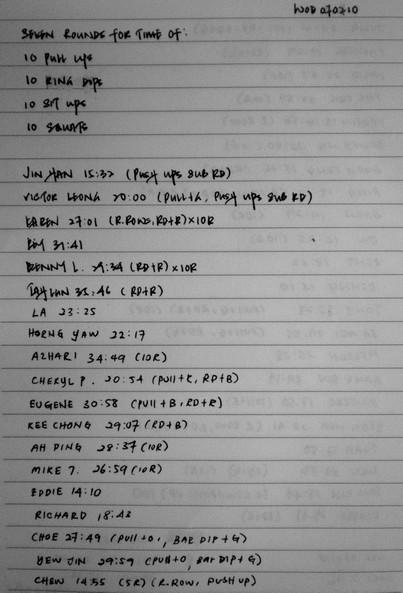 WOD 070210
SEVEN ROUNDS FOR TIME OF:
10 PULL UPS
10 RING DIPS
10 SIT UPS
10 SQUATS
JIN HAN 15:32 (PUSH UPS SUB RD)
VICTOR LEONG 20:00 (PULL+, PUSH UPS SUB RD)
KAREN 27:01 (R.ROWS, RD+R)x10R
31:41
BENNY L. 29:34 (RD+R)x10R
31:46 (RD+R)
LA 23:25
HORNG YAW 22:17
AZHARI 34:49 (10R)
CHERYL P. 20:54 (PULL+R, RD+B)
EUGENE 30:58 (PULL+B, RD+R)
KEE CHONG 29:07 (RD+B)
AH PING 28:37 (10R)
MIKE T. 26:59 (10R)
EDDIE 14:10
RICHARD 18:43
CHOE 27:49 (PULL+O, BAR DIP+G)
YEW JIN 29:59 (PULL+O, BAR DIP+G)
CHEW 14:55 (5R) (R.ROW, PUSH UP)